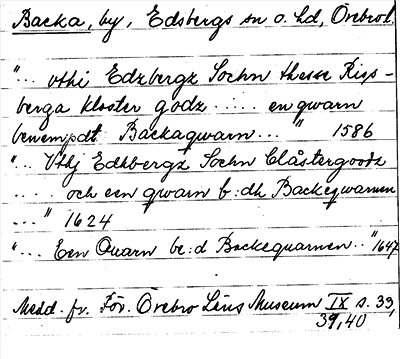 Backa, by, Edsbergs sn o. hd, Örebro l.
"... vthi Edzbergz Sochn thesse Rigs-
berga kloster godz ..... en qwarn
benempdt Backaqwarn..." 1586
"... Vthj Edhbergz Sochn Clåstergoodz
... och een qwarn b:dh Backeqwarnen
..." 1624
"... Een Quarn be:d Backequarnen.." 1647
Medd. fr. För. Örebro Läns Museum IX s. 33,
39, 40